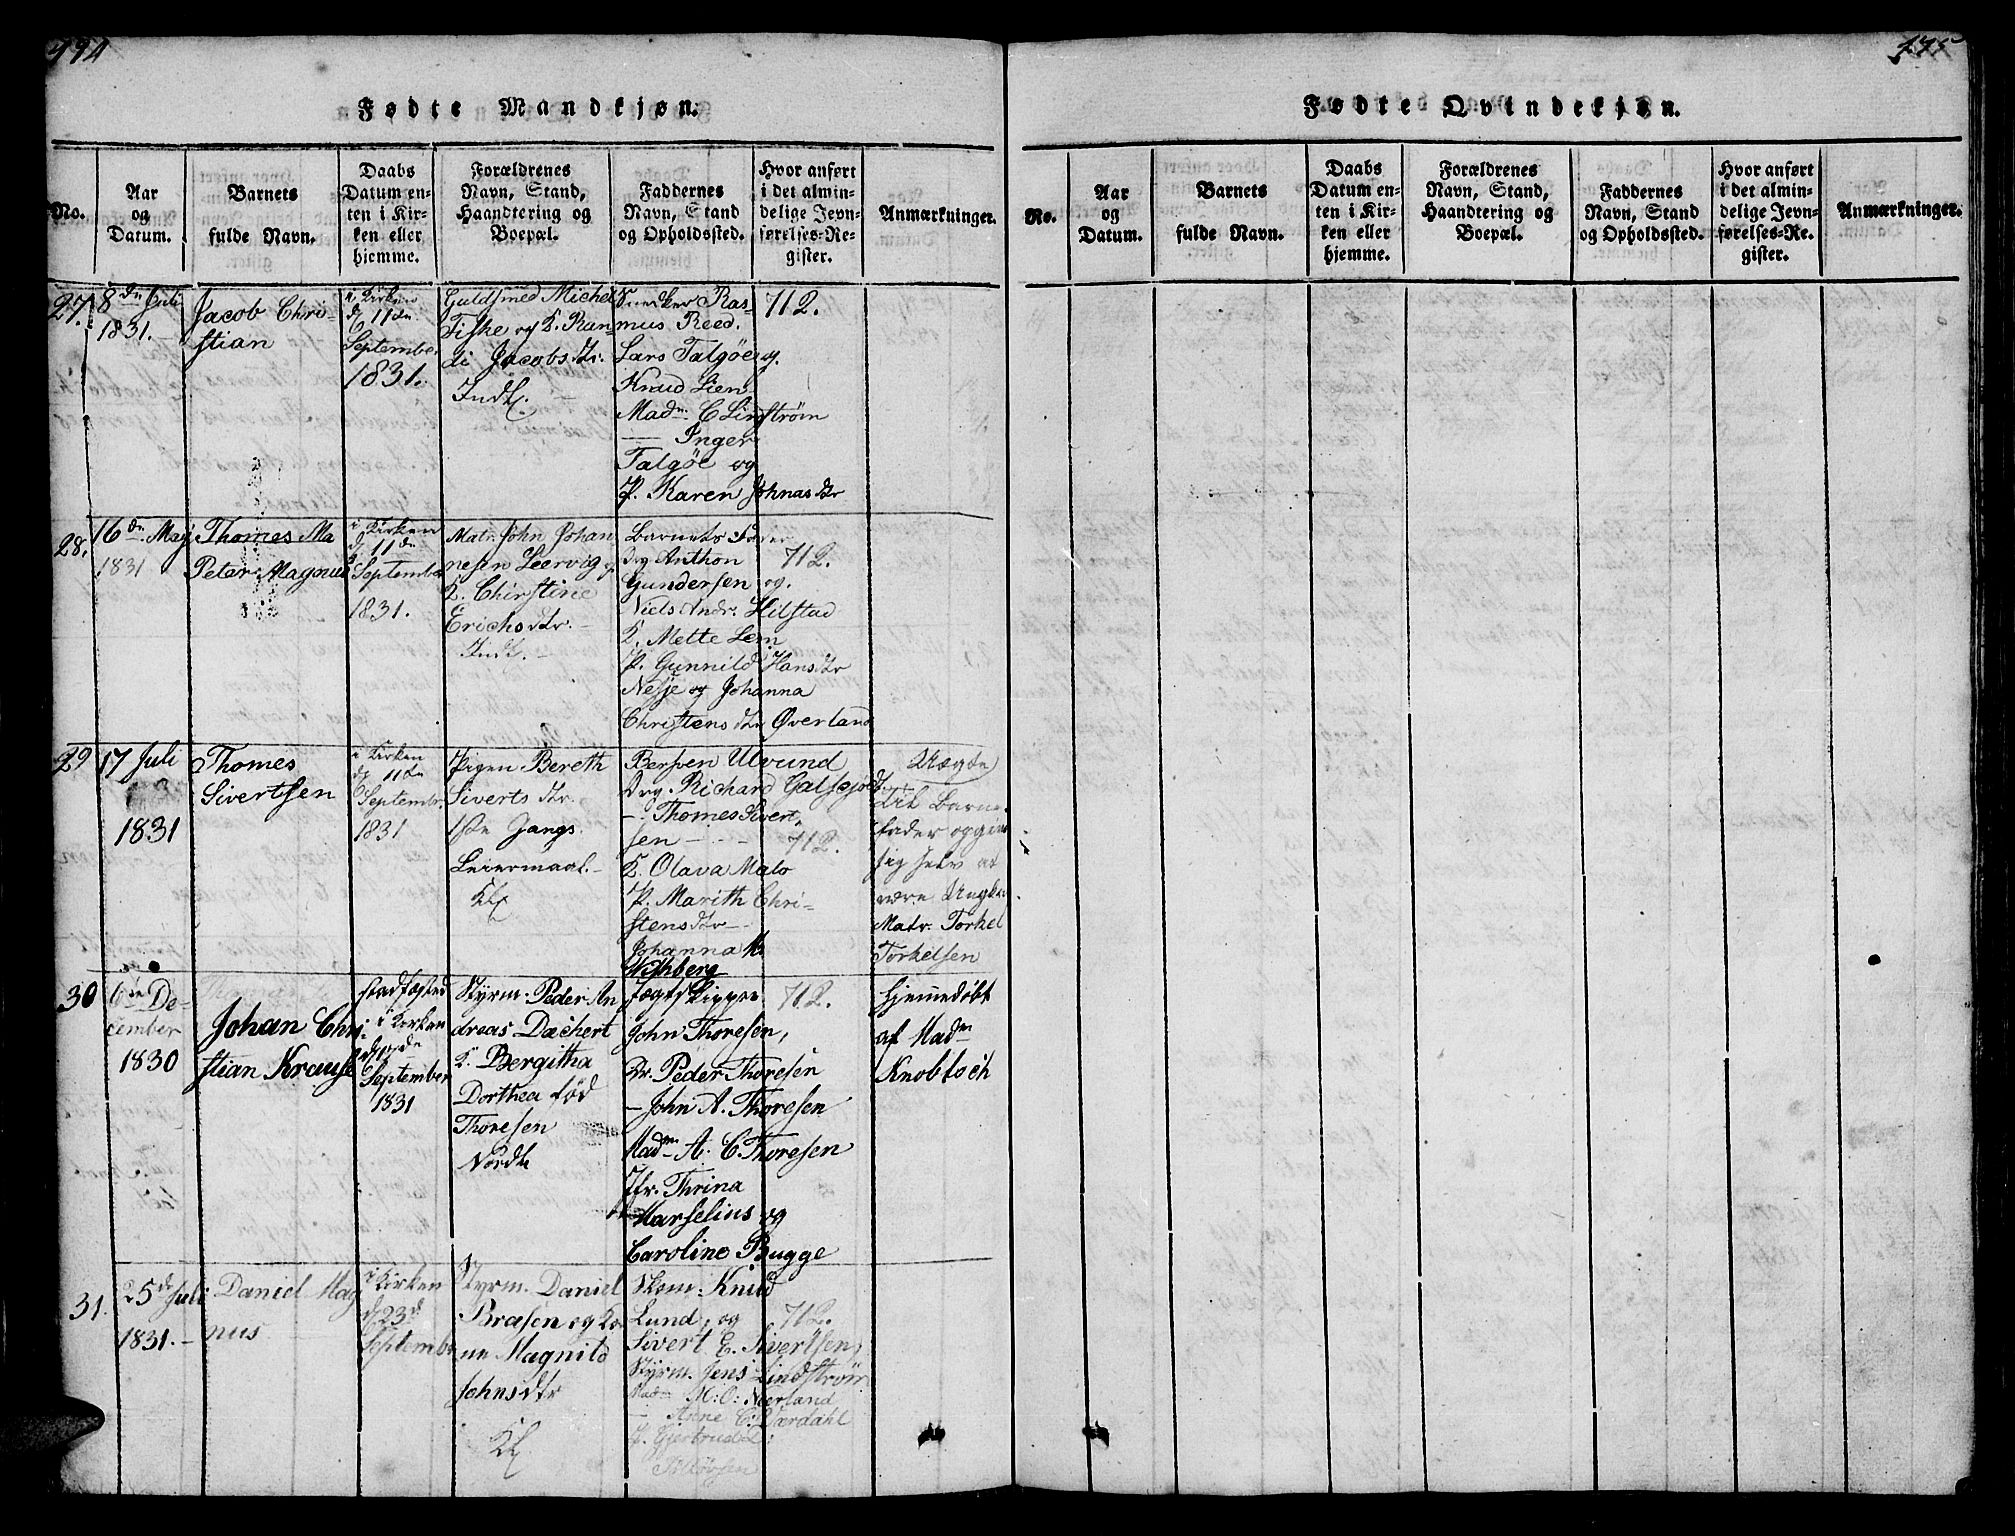 194
195
Fødte Mandkjøn.
No.
Aar
og
Datum.
Barnets
fulde Navn.
Daabs
Datum en-
ten i Kir-
ken eller
hjemme.
Forældrenes
Navn, Stand,
Haandtering og
Boepæl.
Faddernes
Navn, Stand
og Opholdssted.
Hvor anført
i det almin-
delige Jevn-
førelses-Re-
gister.
Anmærkninger.
27.
8de Juli
1831.
Jacob Chri-
stian
i Kirken
d 11de
September
1831.
Guldsmed Michel
Fiske og K. Ran
di Jacobsdtr.
Indl.
Snedker Ras-
mus Reed.
Lars Talgöe og
Knud Lien
Madm C Linstrøm
— Inger
Talgöe og
P. Karen Johnasdtr
712.
28.
16de May
1831
Thomes Ma
Peter Magnus
i Kirken
d 11de
September
1831.
Matr. John Johan
nesen Leervig og
K. Chirstine
Erichsdtr.
Indl.
Barnets Fader
Drg Anthon
Gundersen og
Niels Andr. Hilstad
K. Mette Lem
P. Gunnild Hansdtr
Nesje og Johanna
Christensdtr Øverland
712.
29
17 Juli
1831
Thomes
Sivertsen
i Kirken
d 11de
Septembr.
1831
Pigen Bereth
Siverts dtr.
1ste Jangs
Leiermaal.
Kl
Bersven Ulvund
Drg. Richard Galsejodt.
— Thomes Sivert,
sen
K. Olava Malo
P. Marith Chri-
stensdtr
Johanna M.
Wishberg
712.
Uægte
Til Barne-
fader opgiver
sig selv at
være Ungkar
Matr. Torkel
Torkelsen
30
6te De-
cember
1830
Johan Chri
stian Krause
stadfæsted
i Kirken
September
1831
Styrm. Peder An
dreas Dæchert
K. Bergitha
Dorthea fød
Thoresen
Nordl
Jægtskipper
John Thoresen,
Hr. Peder Thoresen
— John A. Thoresen
Madm A. C. Thoresen
Jfr. Thrina
Marselius og
Caroline Bugge
712.
hjemmedøbt
af Madm
Knobloch
31.
25de Juli
1831.
Daniel Mag
nus
i Kirken
d 23d
September
Styrm. Daniel
Bræsen og Ko
ne Magnild
Johnsdtr
Kl
Skom. Knud
Lund, og
Sivert E. Sivertsen,
Styrm. Jens Lindstrøm
Madm M. O. Neerland
— Anne C. Værdahl
P. Gjertrud L.
712.
Fødte Qvindekjøn.
No.
Aar
og
Datum.
Barnets
fulde Navn.
Daabs
Datum en-
ten i Kir-
ken eller
hjemme.
Forældrenes
Navn, Stand,
Haandtering og
Boepæl.
Faddernes
Navn, Stand
og Opholdssted.
Hvor anført
i det almin-
delige Jevn-
førelses-Re-
gister.
Anmærkninger.